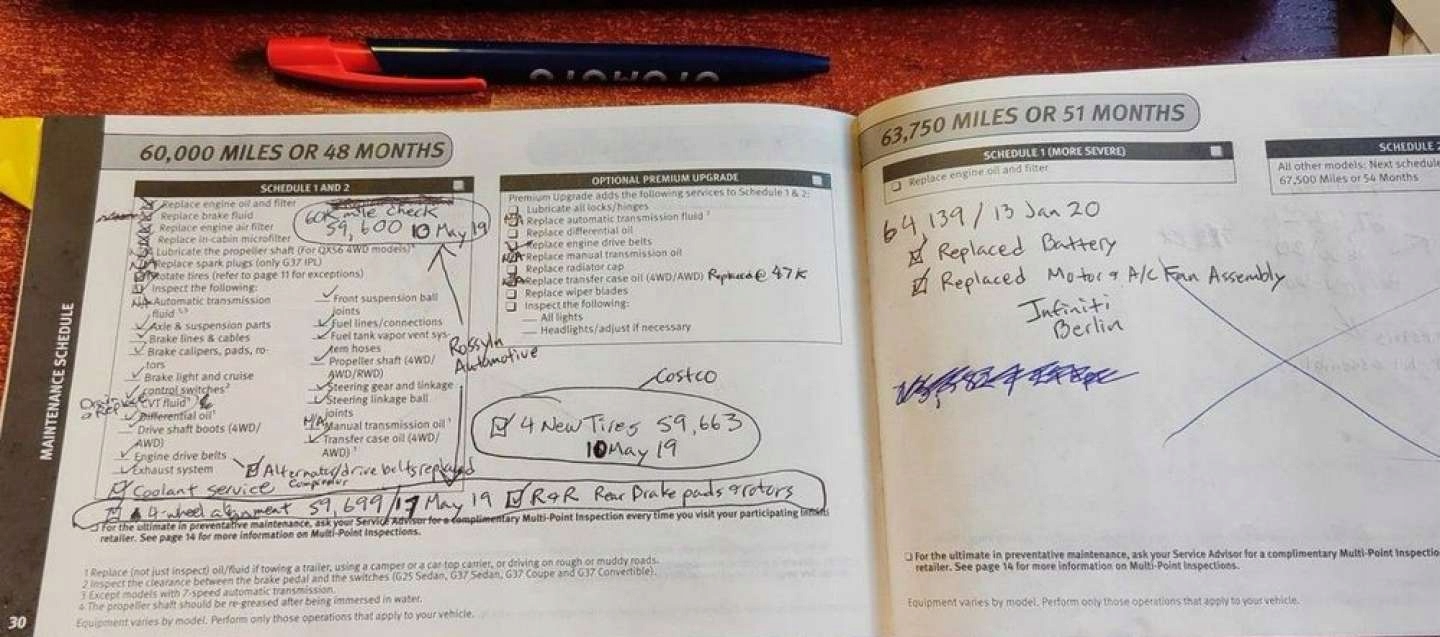 60,000 MILES OR 48 MONTHS
SCHEDULE 1 AND 2
Replace engine oil and filter
Replace brake fluid
Replace engine air filter
Replace in-cabin microfilter
Lubricate the propeller shaft (For QX56 4WD models)⁴
N/A Replace spark plugs (only G37 IPL)
Rotate tires (refer to page 11 for exceptions)
Inspect the following:
N/A Automatic transmission
fluid
Axle & suspension parts
Brake lines & cables
Brake calipers, pads, ro-
tors
Brake light and cruise
control switches²
CVT fluid¹
Differential oil¹
Drive shaft boots (4WD/
AWD)
Engine drive belts
Exhaust system
Front suspension ball
joints
Fuel lines/connections
Fuel tank vapor vent sys-
tem hoses
Propeller shaft (4WD/
AWD/RWD)
Steering gear and linkage
Steering linkage ball
joints
N/A Manual transmission oil¹
Transfer case oil (4WD/
AWD)¹
60K mile check
59,600 10 May 19
Rosslyn
Automotive
Alternator/drive belts replaced
Coolant service
4-wheel alignment 59,699/17 May 19 R&R Rear Brake pads & rotors
For the ultimate in preventative maintenance, ask your Service Advisor for a complimentary Multi-Point Inspection every time you visit your participating Infiniti
retailer. See page 14 for more information on Multi-Point Inspections.
1 Replace (not just inspect) oil/fluid if towing a trailer, using a camper or a car-top carrier, or driving on rough or muddy roads.
2 Inspect the clearance between the brake pedal and the switches (G25 Sedan, G37 Sedan, G37 Coupe and G37 Convertible).
3 Except models with 7-speed automatic transmission.
4 The propeller shaft should be re-greased after being immersed in water.
Equipment varies by model. Perform only those operations that apply to your vehicle.
MAINTENANCE SCHEDULE
30
OPTIONAL PREMIUM UPGRADE
Premium Upgrade adds the following services to Schedule 1 & 2:
Lubricate all locks/hinges
N/A Replace automatic transmission fluid
Replace differential oil
Replace engine drive belts
N/A Replace manual transmission oil
Replace radiator cap
N/A Replace transfer case oil (4WD/AWD) Replaced @ 47K
Replace wiper blades
Inspect the following:
All lights
Headlights/adjust if necessary
Costco
4 New Tires 59,663
10 May 19
63,750 MILES OR 51 MONTHS
SCHEDULE 1 (MORE SEVERE)
Replace engine oil and filter
SCHEDULE 2
All other models: Next schedule
67,500 Miles or 54 Months
64,139 / 13 Jan 20
Replaced Battery
Replaced Motor & A/C Fan Assembly
Infiniti
Berlin
For the ultimate in preventative maintenance, ask your Service Advisor for a complimentary Multi-Point Inspectio
retailer. See page 14 for more information on Multi-Point Inspections.
Equipment varies by model. Perform only those operations that apply to your vehicle.